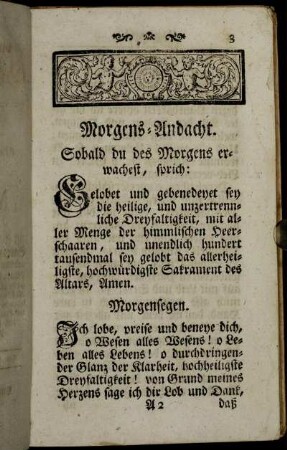 3
Morgens-Andacht.
Sobald du des Morgens er-
wachest, sprich:
Gelobet und gebenedeyet sey
die heilige, und unzertrenn-
liche Dreyfaltigkeit, mit al-
ler Menge der himmlischen Heer-
schaaren, und unendlich hundert
tausendmal sey gelobt das allerhei-
ligste, hochwürdigste Sakrament des
Altars, Amen.
Morgensegen.
Ich lobe, preise und beneye dich,
o Wesen alles Wesens! o Le-
ben alles Lebens! o durchdringen-
der Glanz der Klarheit, hochheiligste
Dreyfaltigkeit! von Grund meines
Herzens sage ich dir Lob und Dank,
A 2 daß